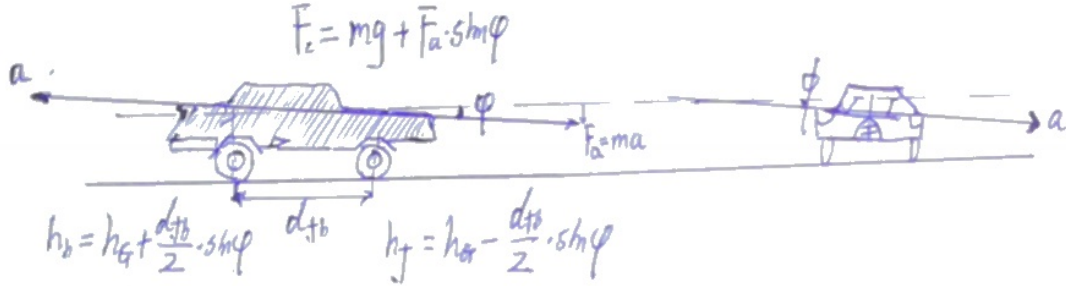 F_z = mg + F_a · sin φ
a
φ
F_a = ma
ϕ
a
d_fb
h_b = h_G + d_fb/2 · sin φ
h_f = h_G - d_fb/2 · sin φ